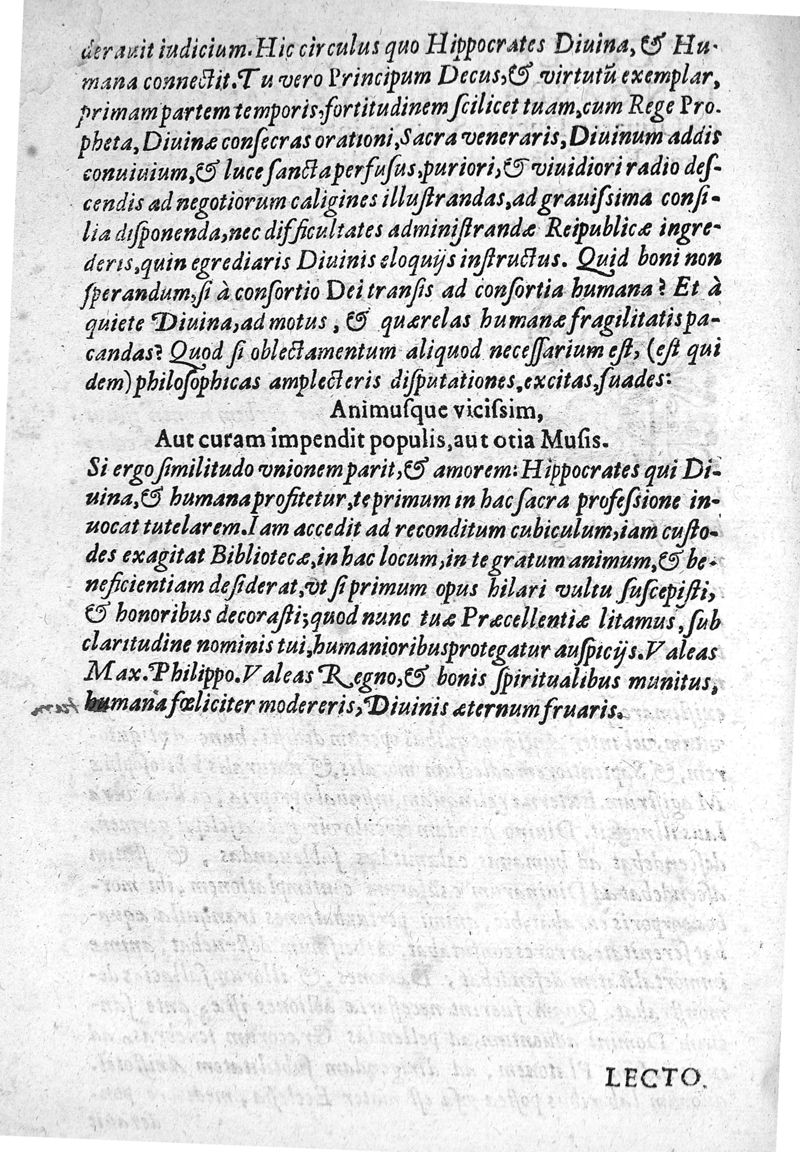 derauit iudicium. Hic circulus quo Hippocrates Diuina, & Hu-
mana connectit. Tu vero Principum Decus, & virtutũ exemplar,
primam partem temporis, fortitudinem scilicet tuam, cum Rege Pro.
pheta, Diuinæ consecras orationi, Sacra veneraris, Diuinum addis
conuiuium, & luce sancta perfusus, puriori, & viuidiori radio des-
cendis ad negotiorum caligines illustrandas, ad grauissima consi-
lia disponenda, nec difficultates administrandæ Reipublicæ ingre-
deris, quin egrediaris Diuinis eloquijs instructus. Quid boni non
sperandum, si à consortio Dei transis ad consortia humana? Et à
quiete Diuina, ad motus, & quærelas humanæ fragilitatis pa-
candas? Quod si oblectamentum aliquod necessarium est, (est qui
dem) philosophicas amplecteris disputationes, excitas, suades:
Animusque vicissim,
Aut curam impendit populis, aut otia Musis.
Si ergo similitudo vnionem parit, & amorem: Hippocrates qui Di-
uina, & humana profitetur, te primum in hac sacra professione in-
uocat tutelarem. Iam accedit ad reconditum cubiculum, iam custo-
des exagitat Bibliotecæ, in hac locum, in te gratum animum, & be-
neficientiam desiderat, vt si primum opus hilari vultu suscepisti,
& honoribus decorasti; quod nunc tuæ Præcellentiæ litamus, sub
claritudine nominis tui, humanioribus protegatur auspicijs. Valeas
Max. Philippo. Valeas Regno, & bonis spiritualibus munitus,
humana fœliciter modereris, Diuinis æternum fruaris.
LECTO.